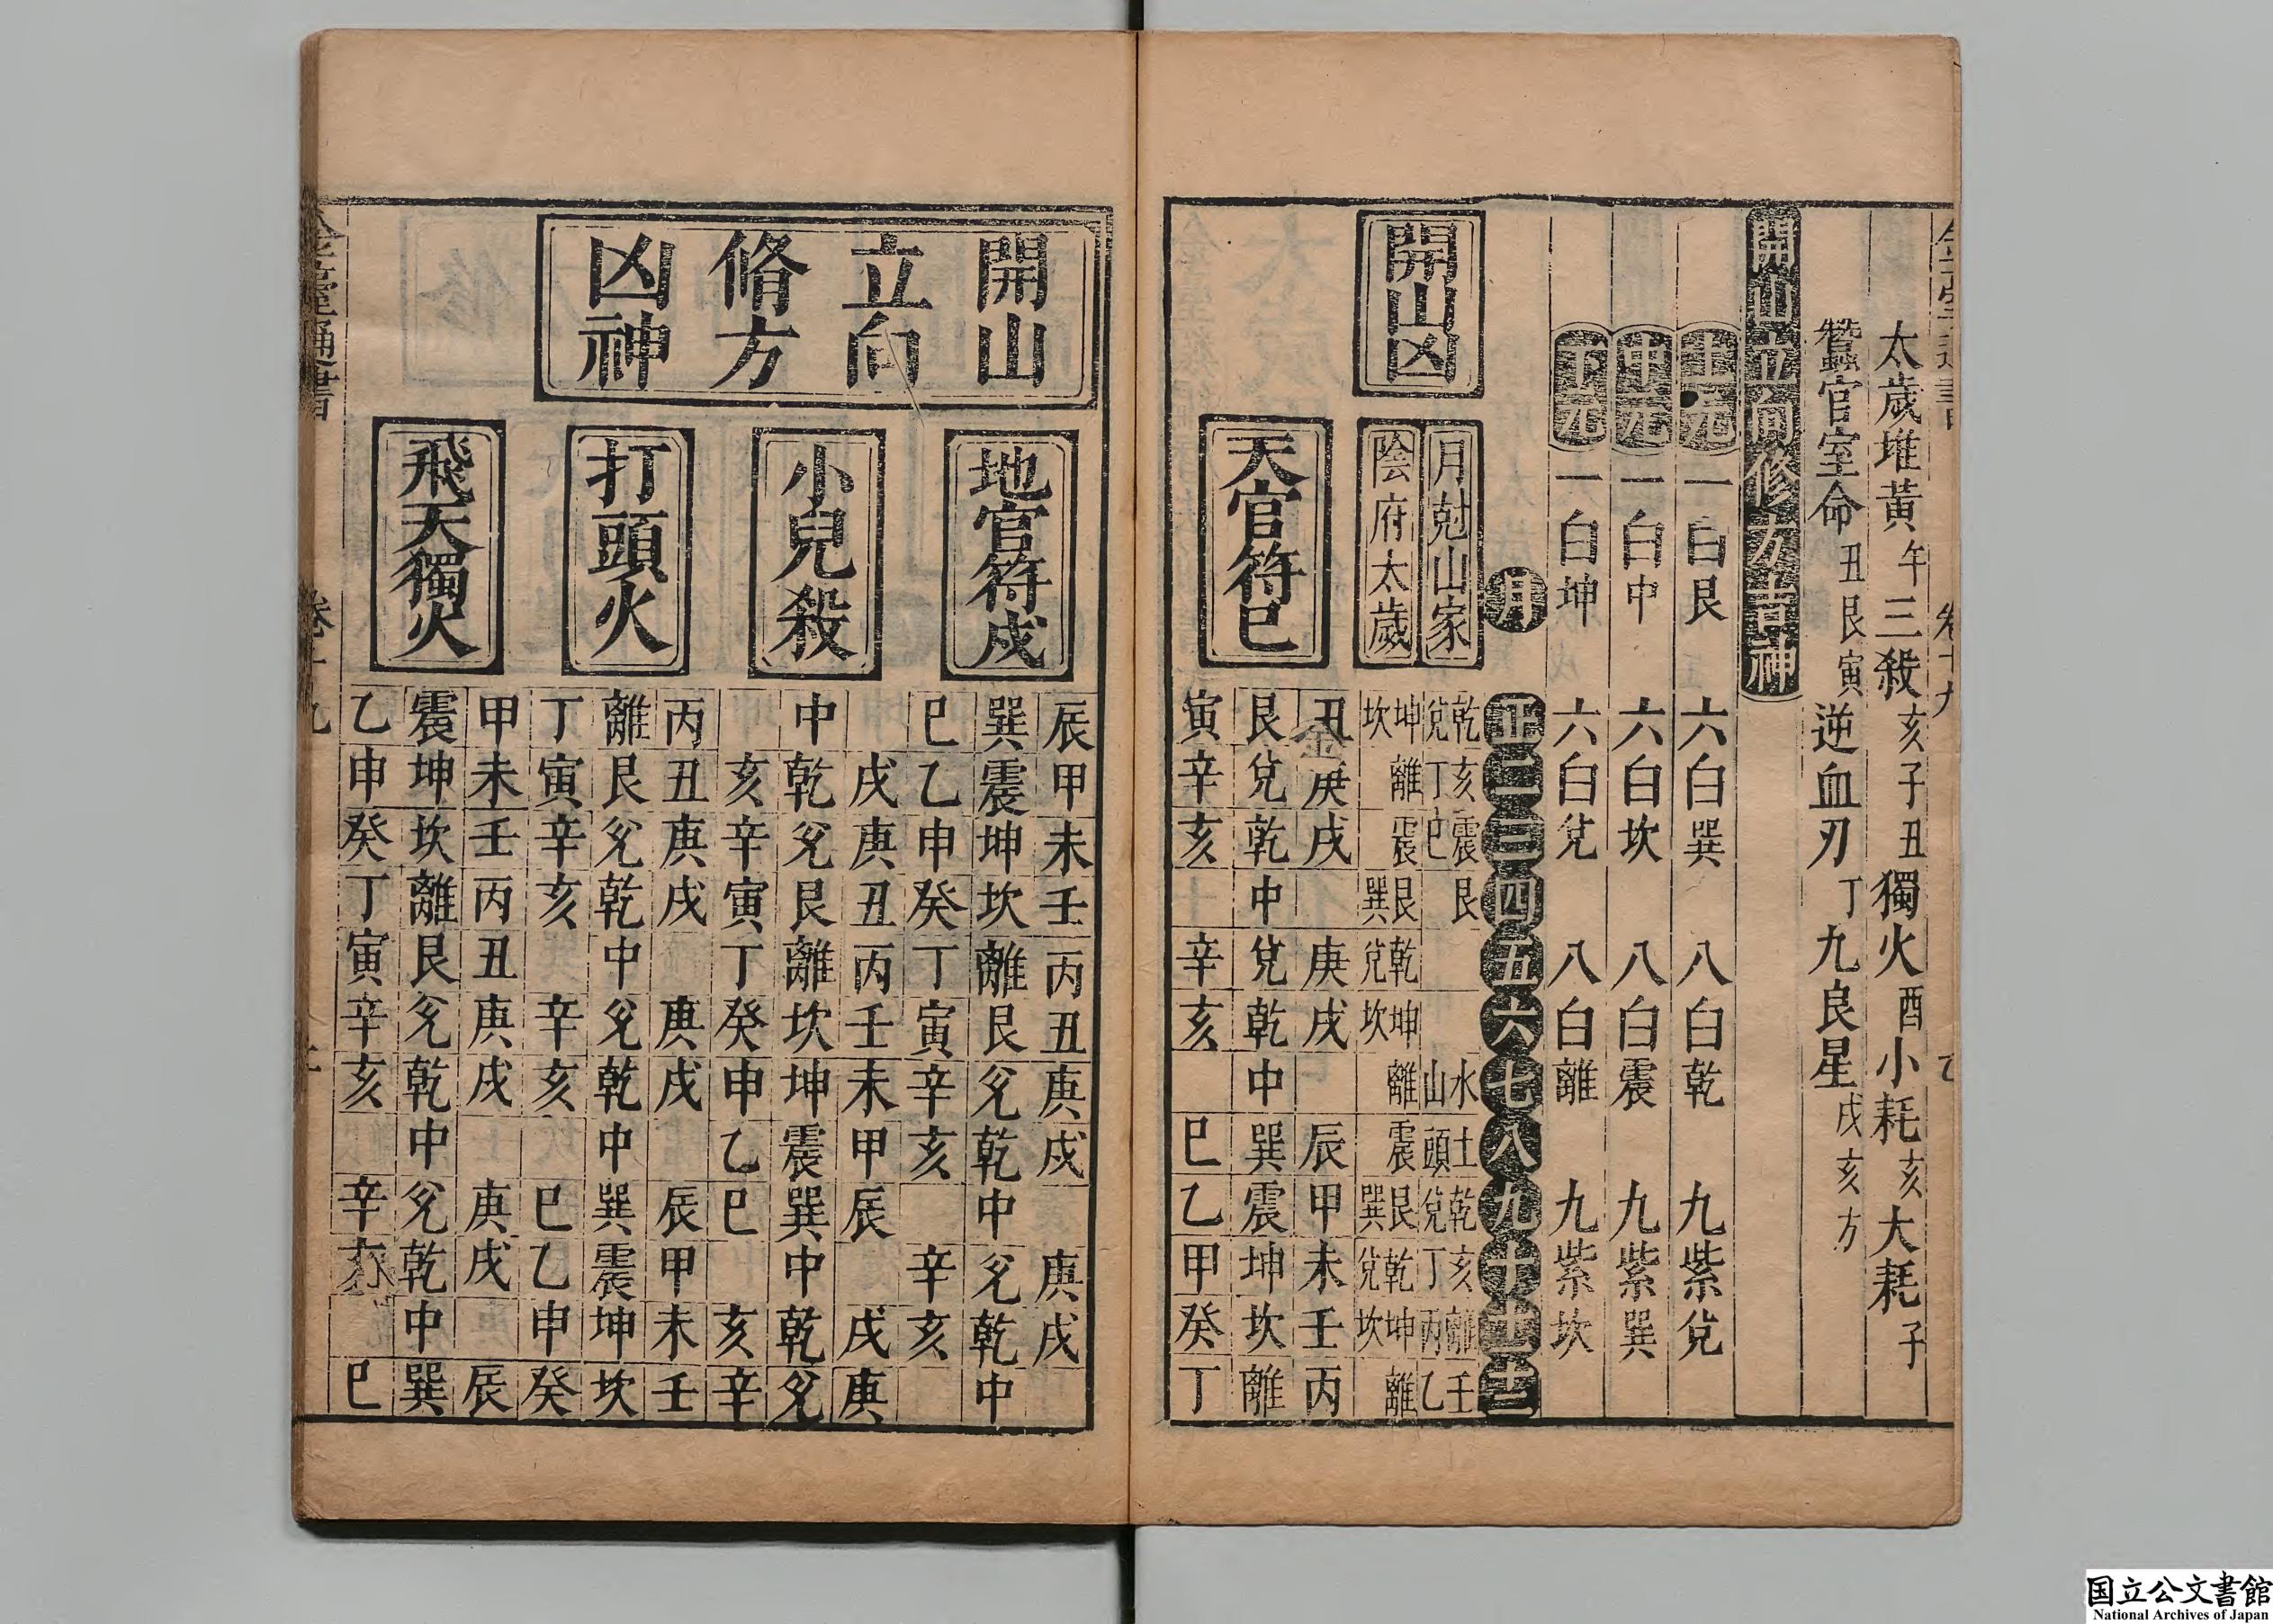 太歲堆黃午三殺亥子丑獨火酉小耗亥大耗子
蠶官室命丑艮寅逆血刃丁九良星戌亥方
開山立向修方吉神
上元一白艮六白巽八白乾九紫兌
中元一白中六白坎八白震九紫巽
下元一白坤六白兌八白離九紫坎
月正二三四五六七八九十十一十二
開山凶
月尅山家
乾亥震艮水土乾亥離壬
兌丁巳山頭兌丁丙乙
陰府太歲
坤離震艮乾坤離震艮乾坤離
坎巽兌坎巽兌坎
天官符巳
丑庚戌庚戌辰甲未壬丙
艮兌乾中兌乾中巽震坤坎離
寅辛亥辛亥巳乙甲癸丁
開山
立向
脩方
凶神
地官符戍
辰甲未壬丙丑庚戌庚戌
巽震坤坎離艮兌乾中兌乾中
巳乙申癸丁寅辛亥辛亥
小兒殺
戌庚丑丙壬未甲辰戌庚
中乾兌艮離坎坤震巽中乾兌
亥辛寅丁癸申乙巳亥辛
打頭火
丙丑庚戌庚戌辰甲未壬
離艮兌乾中兌乾中巽震坤坎
丁寅辛亥辛亥巳乙申癸
飛天獨火
甲未壬丙丑庚戌庚戌辰
震坤坎離艮兌乾中兌乾中巽
乙申癸丁寅辛亥辛亥巳
卷十九
国立公文書館
National Archives of Japan